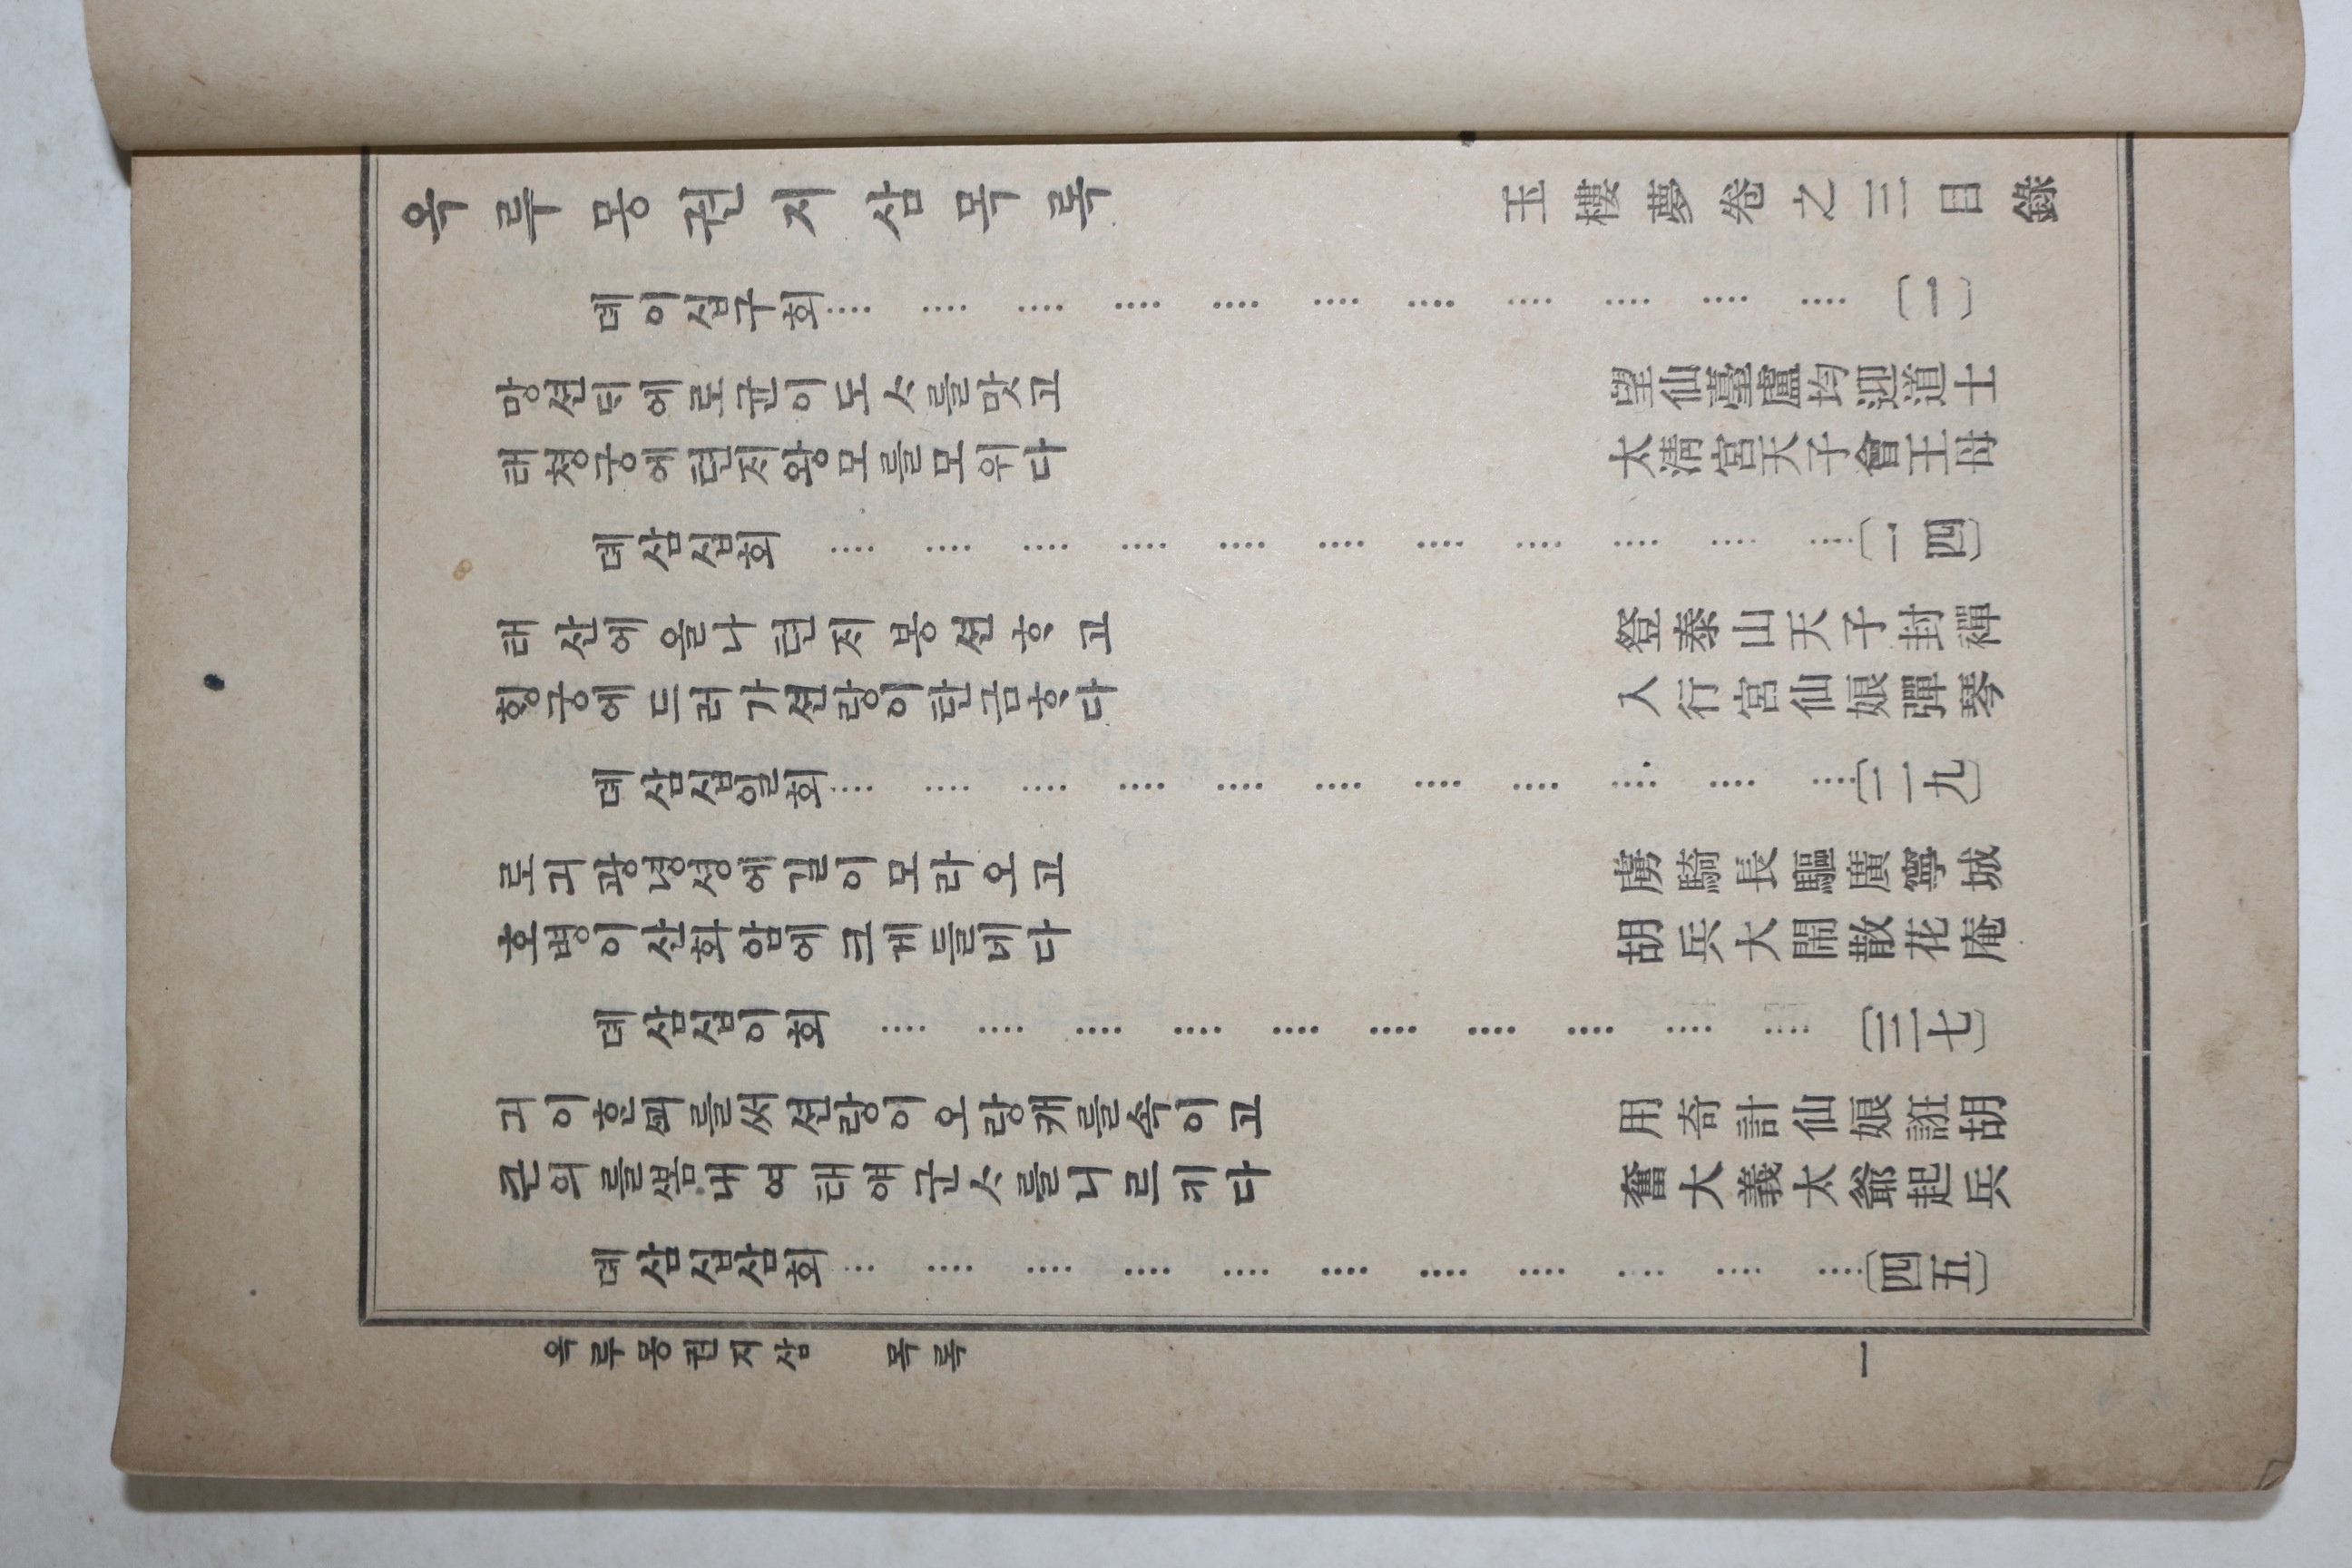 옥루몽권지삼목록 玉樓夢卷之三目錄
뎨이십구회 〔一〕
망션ᄃᆡ에로균이도ᄉᆞ를맛고 望仙臺盧均迎道士
태쳥궁에텬ᄌᆞ왕모를모위다 太淸宮天子會王母
뎨삼십회 〔一四〕
태산에올나텬ᄌᆞ봉션ᄒᆞ고 登泰山天子封禪
ᄒᆡᆼ궁에드러가션랑이탄금ᄒᆞ다 入行宮仙娘彈琴
뎨삼십일회 〔二九〕
로긔광녕셩에길이모라오고 虜騎長驅廣寧城
호병이산화암에크게들네다 胡兵大鬧散花庵
뎨삼십이회 〔三七〕
긔이한ᄭᅬ를써션랑이오랑캐를속이고 用奇計仙娘誑胡
큰의를ᄲᅩᆷ내여태야군ᄉᆞ를니르키다 奮大義太爺起兵
뎨삼십삼회 〔四五〕
옥루몽권지삼 목록 一